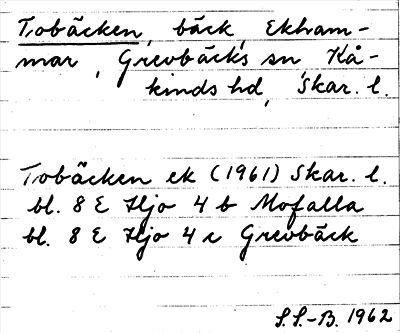 Tobäcken, bäck, Ekham-
mar, Grevbäcks sn, Kå-
kinds hd, Skar. l.
Tobäcken ek (1961) Skar. l.
bl. 8 E Hjo 4 b Mofalla
bl. 8 E Hjo 4 c Grevbäck
S.S.-B. 1962